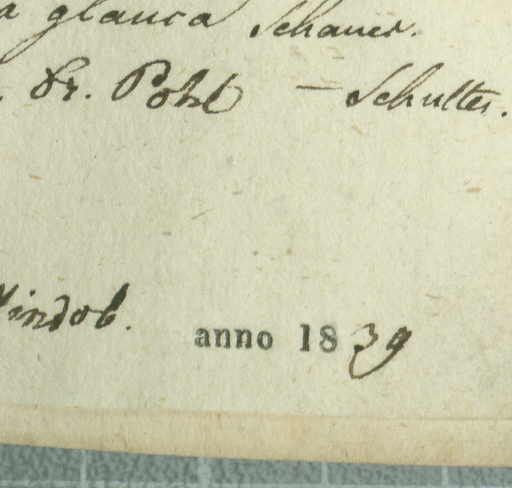 a glauca Schauer.
Dr. Pohl — Schultes.
Vindob.
anno 1839